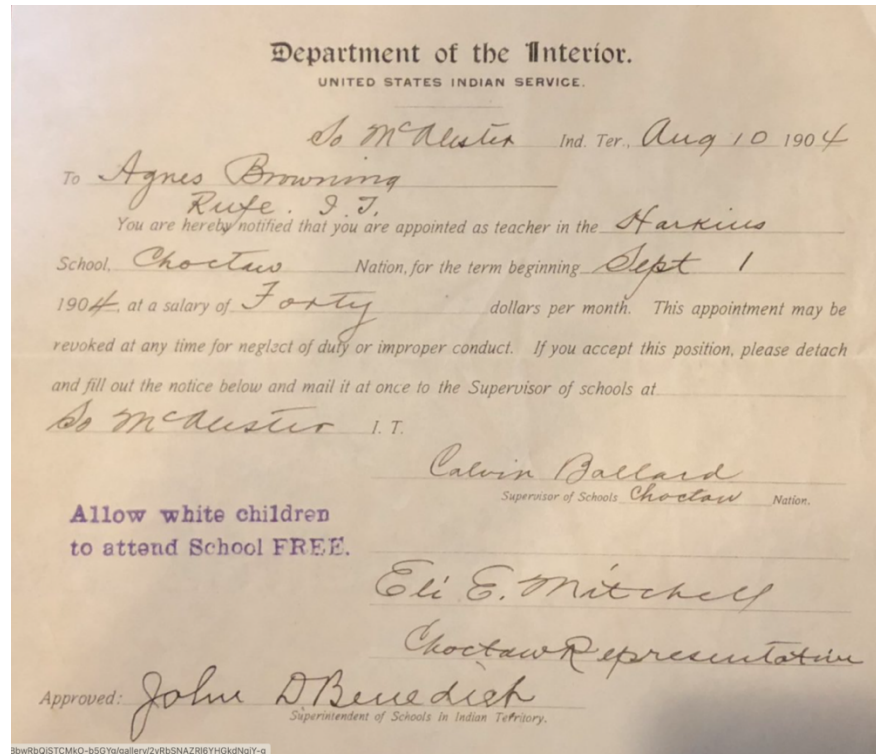 Department of the Interior.
UNITED STATES INDIAN SERVICE.
So McAlester Ind. Ter., Aug 10 1904
To Agnes Browning
Rufe. I. T.
You are hereby notified that you are appointed as teacher in the Harkins
School, Choctaw Nation, for the term beginning Sept 1
1904, at a salary of Forty dollars per month. This appointment may be
revoked at any time for neglect of duty or improper conduct. If you accept this position, please detach
and fill out the notice below and mail it at once to the Supervisor of schools at
So McAlester I. T.
Calvin Ballard
Supervisor of Schools Choctaw Nation.
Allow white children
to attend School FREE.
Eli E. Mitchell
Choctaw Representative
Approved: John D Benedict
Superintendent of Schools in Indian Territory.